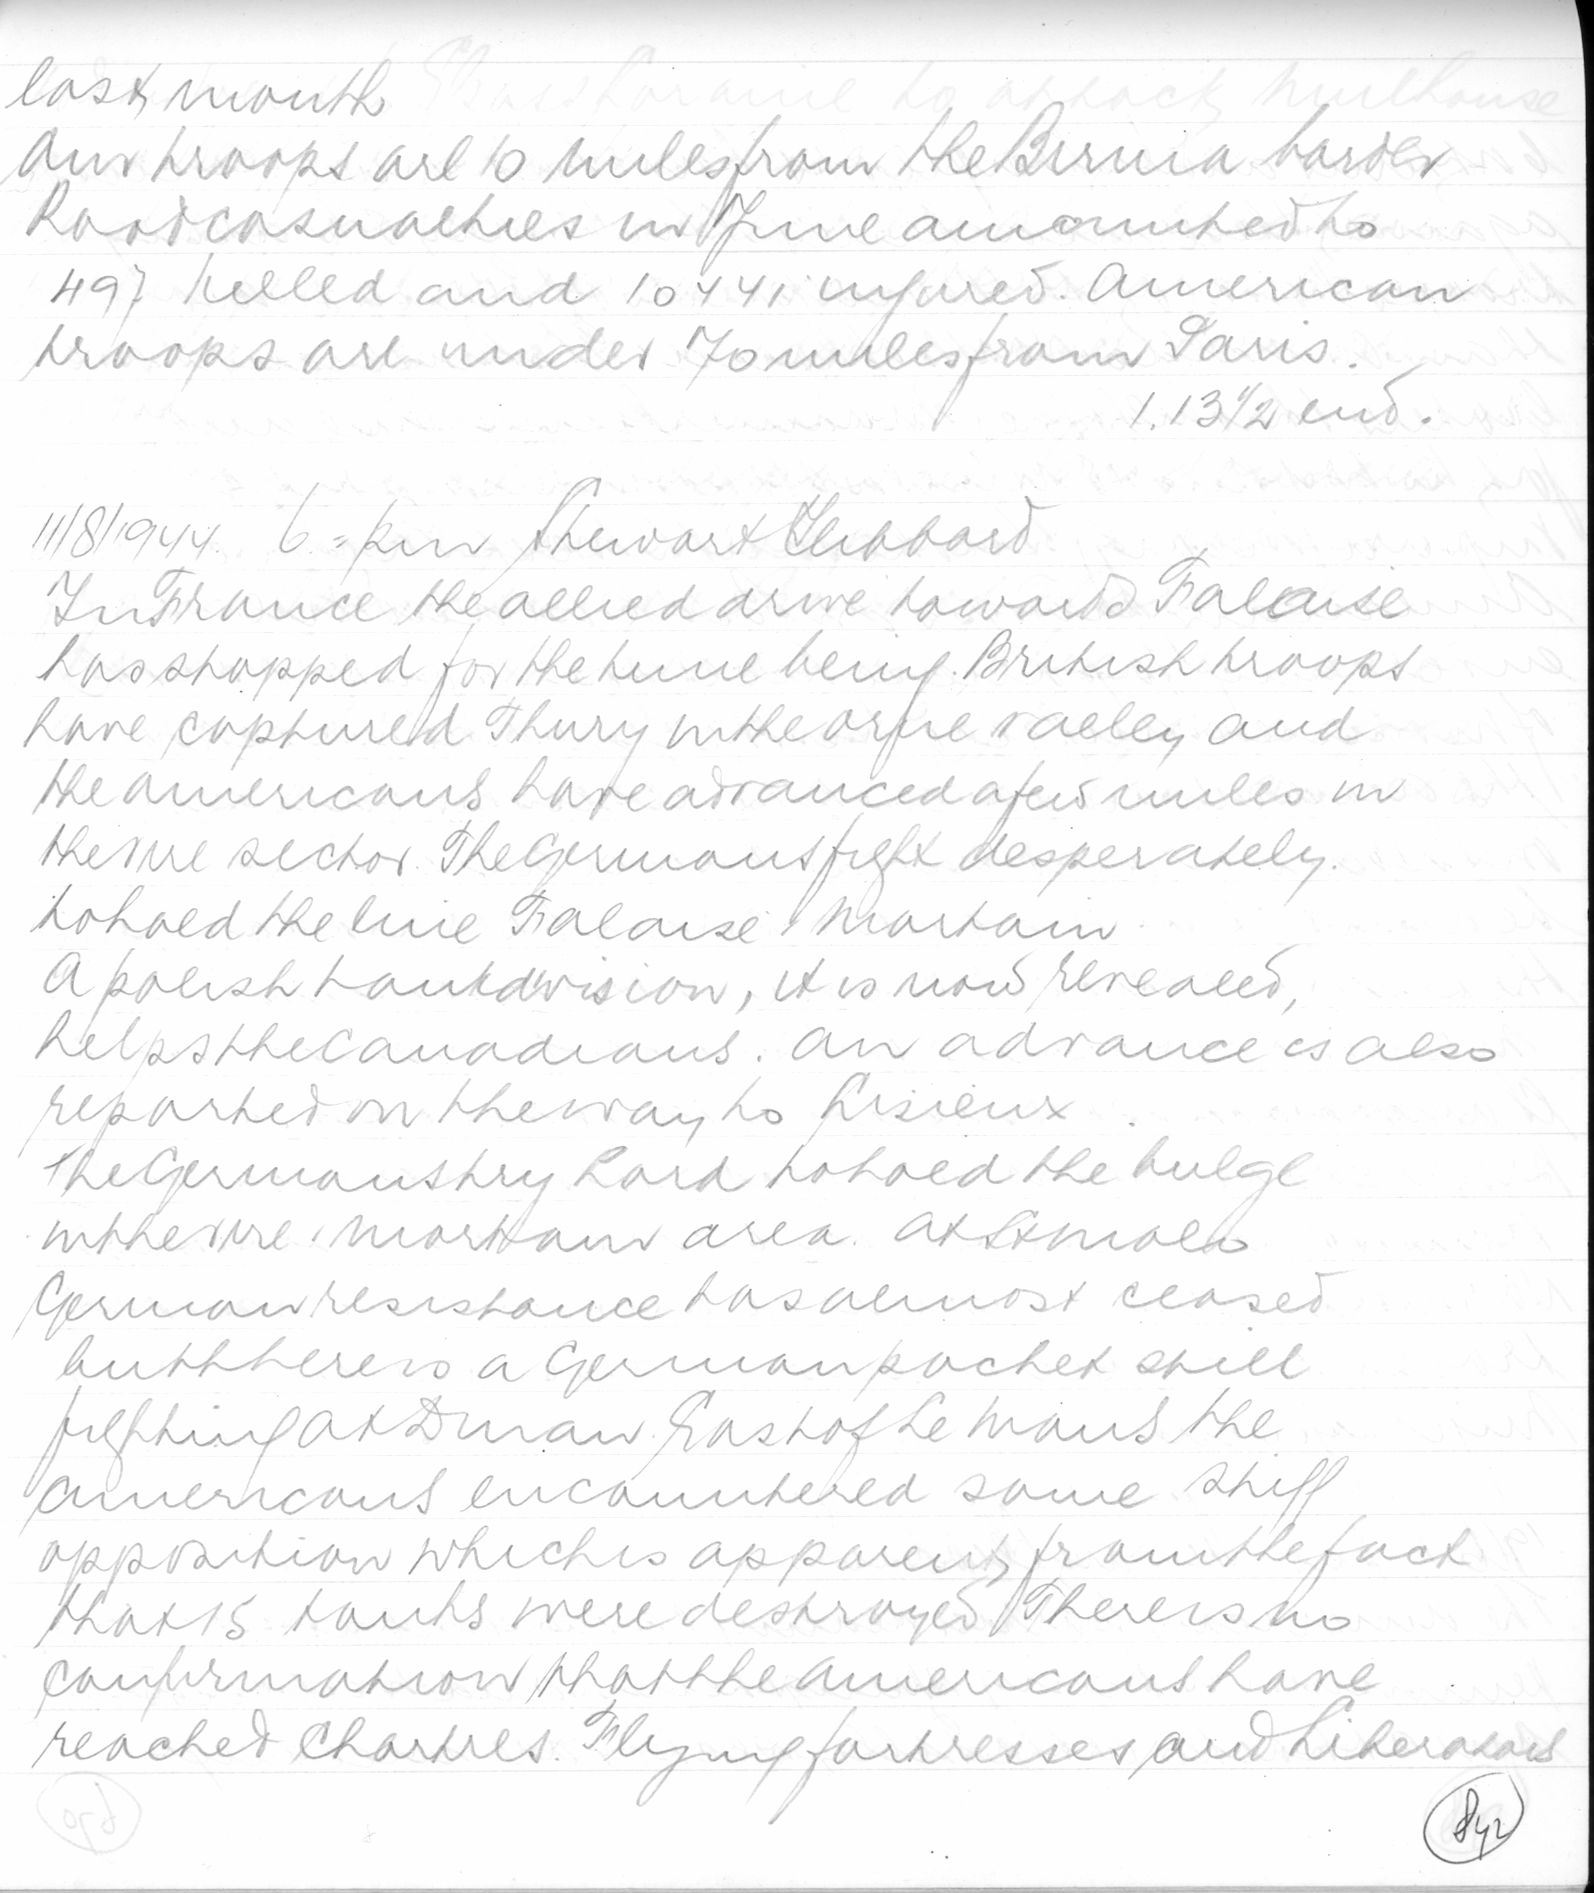 last month
Our troops are 10 miles from the Birma border
Road casualties in June amounted to
497 killed and 10441 injured. American
troops are under 70 miles from Paris.
1.13 1/2 end.
11/8/1944. 6.= pm Stewart Hibbard
In France the allied drive towards Falaise
has stopped for the time being. British troops
have captured Thury in the Orne valley and
the Americans have advanced a few miles in
the Vire sector. The Germans fight desperately.
to hold the line Falaise Mortain
A polish tankdivision, it is now revealed,
helps the Canadians. An advance is also
reported on the way to Lisieux
The Germans try hard to hold the bulge
in the Vire, Mortain area. At St Malo
German resistance has almost ceased
but there is a German pocket still
fighting at Dinan. East of Le Mans the
Americans encountered some stiff
opposition which is apparent from the fact
that 15 tanks were destroyed. There is no
confirmation that the Americans have
reached Chartres. Flying fortresses and Liberators
842